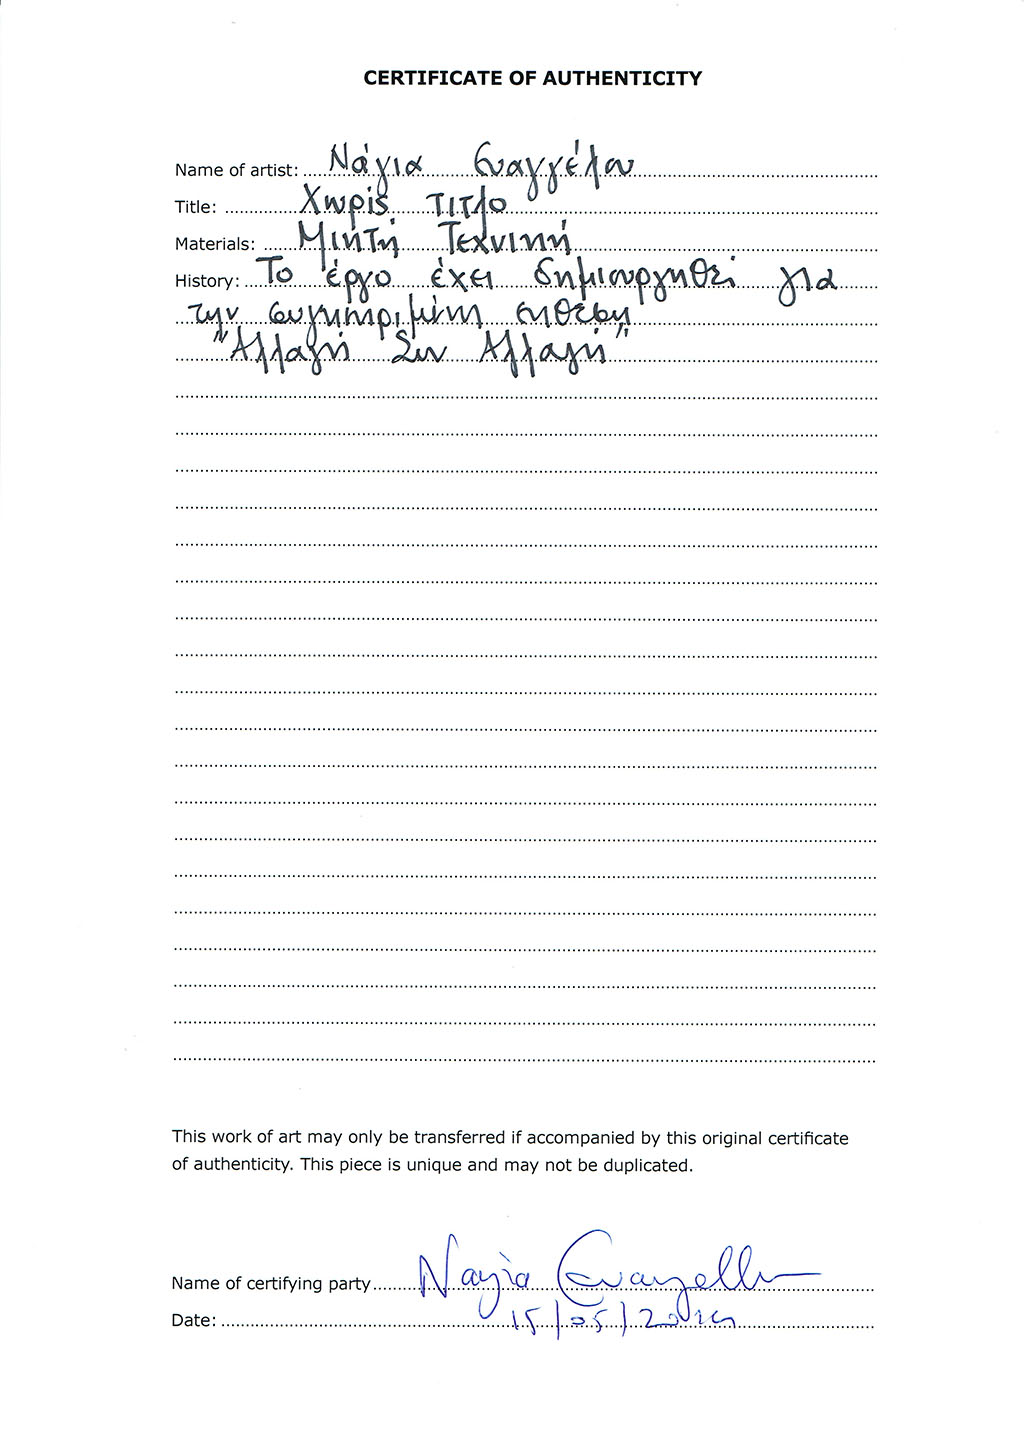 CERTIFICATE OF AUTHENTICITY
Name of artist: Νάγια Ευαγγέλου
Title: Χωρίς τιτλο
Materials: Μικτή Τεχνική
History: Το έργο έχει δημιουργηθεί για
την συγκεκριμένη εκθεση
"Αλλαγή Συν Αλλαγή"
This work of art may only be transferred if accompanied by this original certificate
of authenticity. This piece is unique and may not be duplicated.
Name of certifying party Nayia Evangellou
Date: 15/05/2014